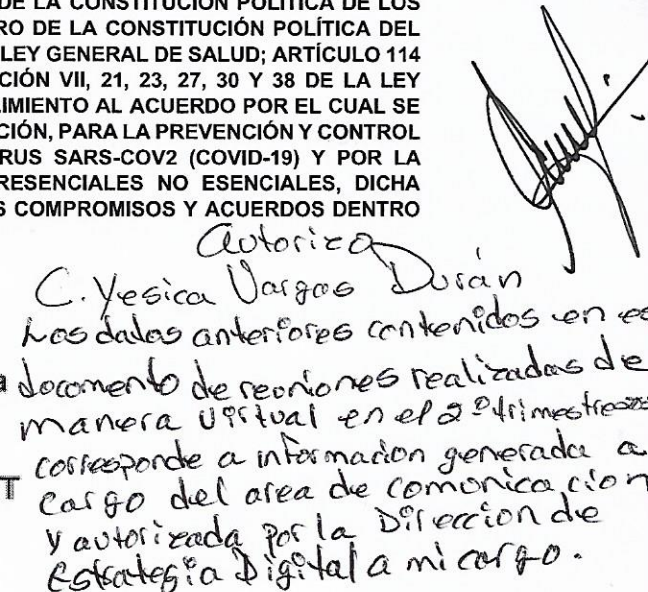 DE LA CONSTITUCIÓN POLÍTICA DE LOS
RO DE LA CONSTITUCIÓN POLÍTICA DEL
LEY GENERAL DE SALUD; ARTÍCULO 114
CIÓN VII, 21, 23, 27, 30 Y 38 DE LA LEY
LIMIENTO AL ACUERDO POR EL CUAL SE
CIÓN, PARA LA PREVENCIÓN Y CONTROL
RUS SARS-COV2 (COVID-19) Y POR LA
RESENCIALES NO ESENCIALES, DICHA
S COMPROMISOS Y ACUERDOS DENTRO
Autorizo
C. Yesica Vargas Durán
Los datos anteriores contenidos en es
a documento de reuniones realizadas de
manera virtual en el 2º trimestre
corresponde a informacion generada a
T cargo del area de comunicacion
y autorizada por la Direccion de
Estrategia Digital a mi cargo.